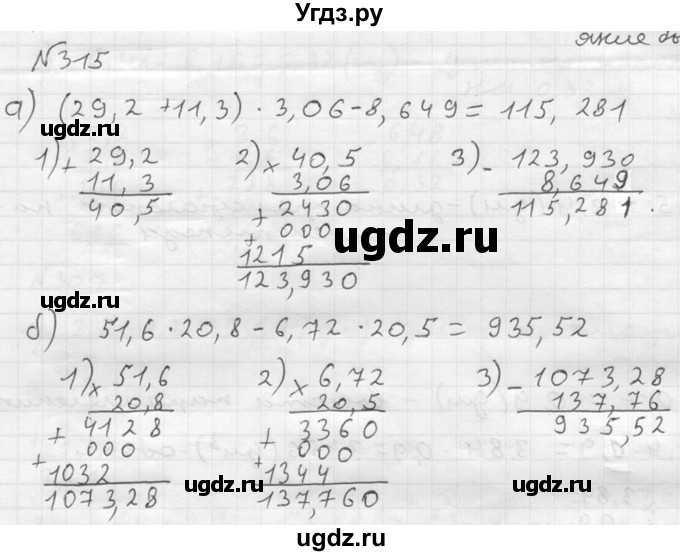 Угдз.ру
якие
№315
а) (29,2 + 11,3) · 3,06 - 8,649 = 115,281
1) + 29,2 2) × 40,5 3) - 123,930
11,3 3,06 8,649
40,5 + 2430 115,281.
+ 000
1215
123,930
б) 51,6 · 20,8 - 6,72 · 20,5 = 935,52
1) × 51,6 2) × 6,72 3) - 1073,28
20,8 20,5 137,76
+ 4128 + 3360 935,52
+ 000 + 000
1032 1344
1073,28 137,760
uгдз.ru
uгдз.ru
uгдз.ru
uгдз.ru
uгдз.ru
uгдз.ru
uгдз.ru
uгдз.ru